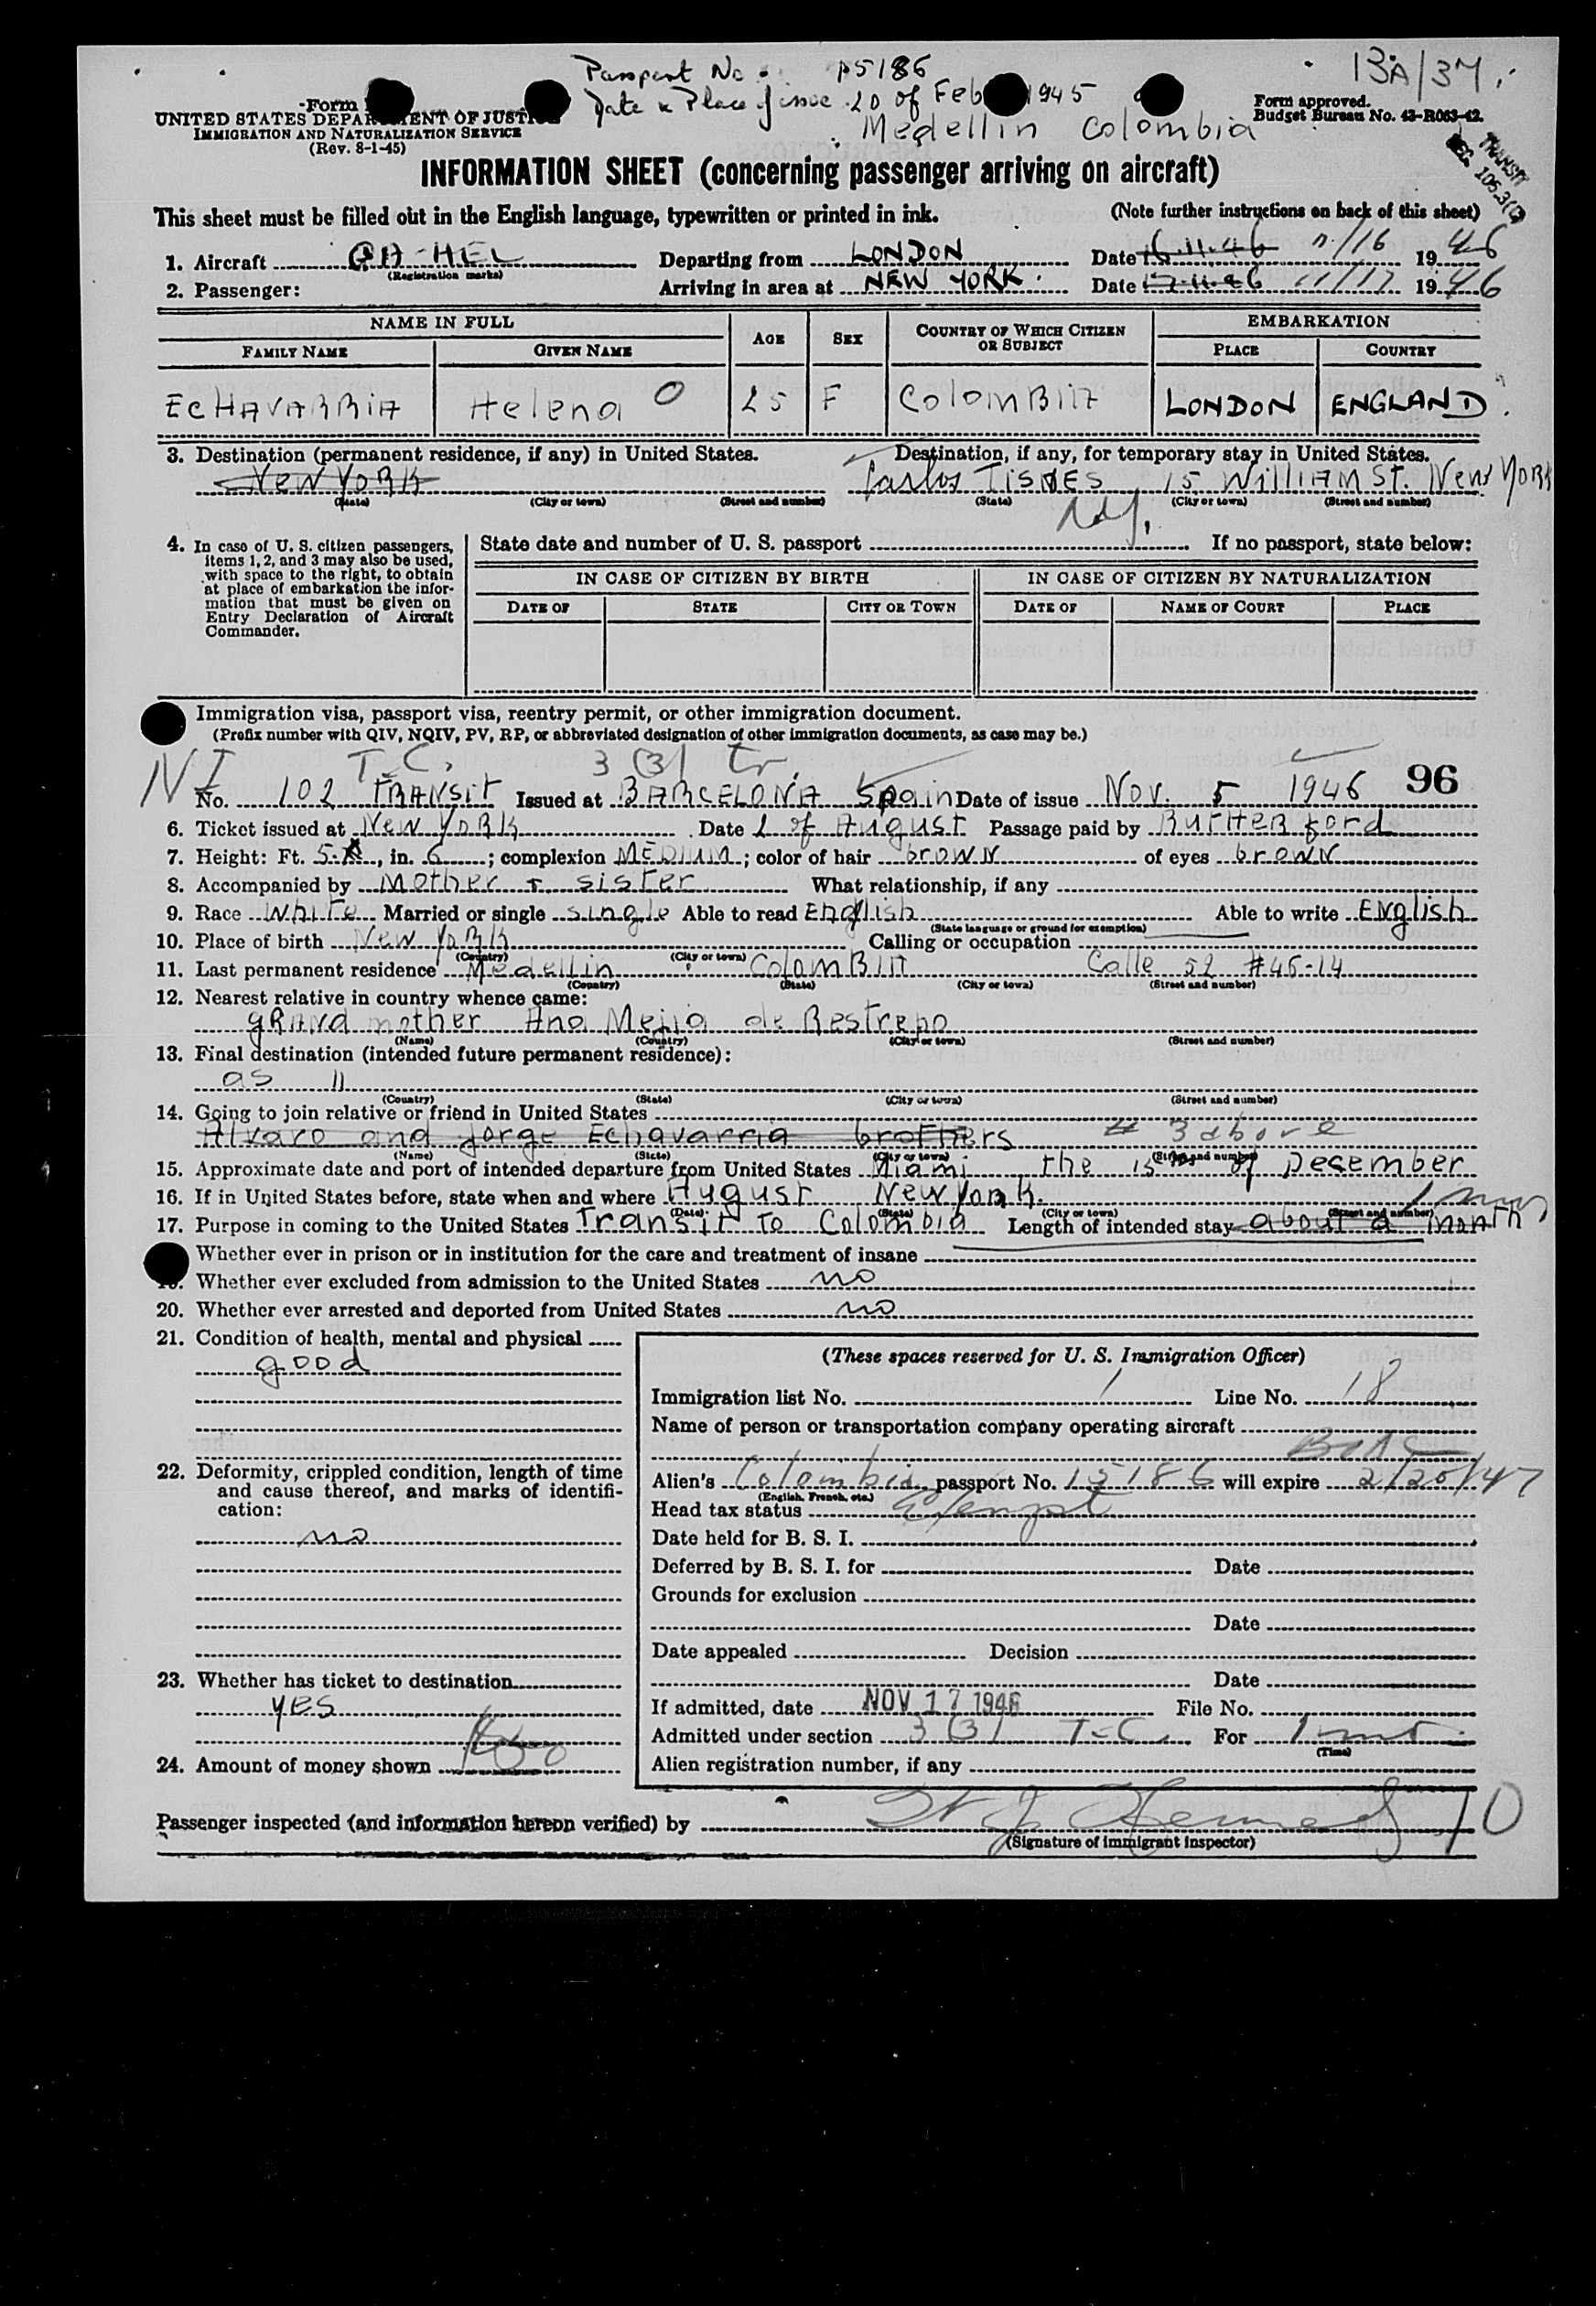 Passport No. 15186
Date & Place of issue 20 of Feb 1945
Medellin Colombia
13A/37
Form
UNITED STATES DEPARTMENT OF JUSTICE
IMMIGRATION AND NATURALIZATION SERVICE
(Rev. 8-1-45)
Form approved.
Budget Bureau No. 43-R063-42.
TRANSIT
SEC. 105.3(
INFORMATION SHEET (concerning passenger arriving on aircraft)
This sheet must be filled out in the English language, typewritten or printed in ink. (Note further instructions on back of this sheet)
1. Aircraft GA-HEL Departing from LONDON Date 16.11.46 11/16 1946
(Registration marks)
2. Passenger: Arriving in area at NEW YORK. Date 17.11.46 11/17 1946
NAME IN FULL AGE SEX COUNTRY OF WHICH CITIZEN OR SUBJECT EMBARKATION
FAMILY NAME GIVEN NAME PLACE COUNTRY
ECHAVARRIA Helena O 25 F COLOMBIA LONDON ENGLAND.
3. Destination (permanent residence, if any) in United States. Destination, if any, for temporary stay in United States.
New YORK Carlos TISNES 15 WILLIAM ST. New YORK
(State) (City or town) (Street and number) (State) (City or town) (Street and number)
4. In case of U. S. citizen passengers, items 1, 2, and 3 may also be used, with space to the right, to obtain at place of embarkation the information that must be given on Entry Declaration of Aircraft Commander.
State date and number of U. S. passport If no passport, state below:
IN CASE OF CITIZEN BY BIRTH IN CASE OF CITIZEN BY NATURALIZATION
DATE OF STATE CITY OR TOWN DATE OF NAME OF COURT PLACE
Immigration visa, passport visa, reentry permit, or other immigration document.
(Prefix number with QIV, NQIV, PV, RP, or abbreviated designation of other immigration documents, as case may be.)
NI T.C. 3(3) tr.
No. 102 TRANSIT Issued at BARCELONA Spain Date of issue Nov. 5 1946 96
6. Ticket issued at New YORK Date 2 of August Passage paid by RUTHERford
7. Height: Ft. 5, in. 6; complexion MEDIUM; color of hair brown of eyes brown
8. Accompanied by Mother + sister What relationship, if any
9. Race White Married or single single Able to read English Able to write English
(State language or ground for exemption)
10. Place of birth New YORK Calling or occupation
(Country) (City or town)
11. Last permanent residence Medellin COLOMBIA Calle 52 #46-14
(Country) (State) (City or town) (Street and number)
12. Nearest relative in country whence came:
GRAND mother Ana Mejia de Restrepo
(Name) (Country) (City or town) (Street and number)
13. Final destination (intended future permanent residence):
as 11
(Country) (State) (City or town) (Street and number)
14. Going to join relative or friend in United States
Alvaro and Jorge Echavarria brothers # 3 above
(Name) (State) (City or town) (Street and number)
15. Approximate date and port of intended departure from United States Miami the 15 of December
16. If in United States before, state when and where August New York.
(Date) (State) (City or town) (Street and number)
17. Purpose in coming to the United States Transit to Colombia Length of intended stay about a month
Whether ever in prison or in institution for the care and treatment of insane
19. Whether ever excluded from admission to the United States no
20. Whether ever arrested and deported from United States no
21. Condition of health, mental and physical
good
22. Deformity, crippled condition, length of time and cause thereof, and marks of identification:
no
23. Whether has ticket to destination
yes
24. Amount of money shown
(These spaces reserved for U. S. Immigration Officer)
Immigration list No. 1 Line No. 18
Name of person or transportation company operating aircraft
BOAC
Alien's Colombia passport No. 15186 will expire 2/20/47
(English, French, etc.)
Head tax status Exempt
Date held for B. S. I.
Deferred by B. S. I. for Date
Grounds for exclusion
Date
Date appealed Decision
Date
If admitted, date NOV 17 1946 File No.
Admitted under section 3(3) T-C. For 1 mt
(Time)
Alien registration number, if any
Passenger inspected (and information hereon verified) by 10
(Signature of immigrant inspector)